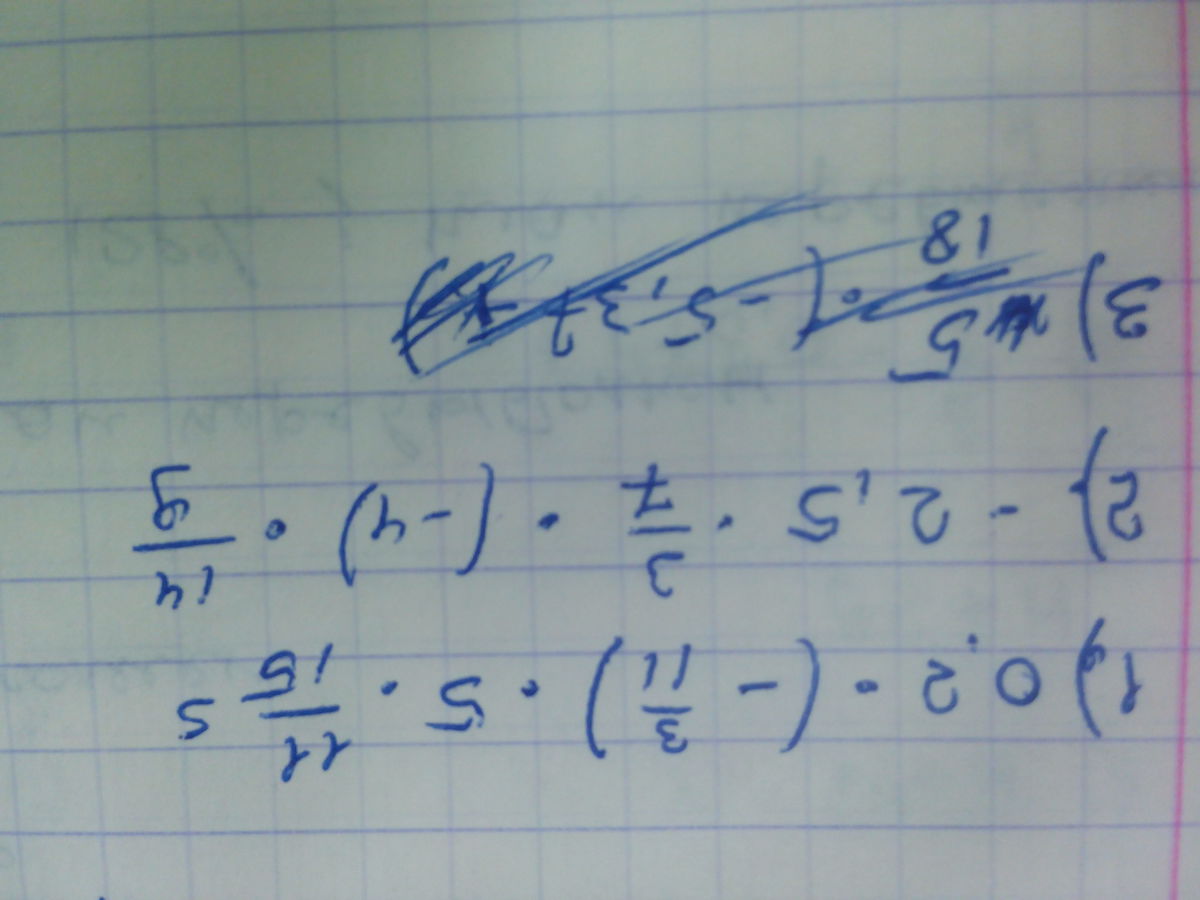 1) 0,2 · (- 3/11) · 5 · 11/15 s
2) - 2,5 · 3/7 · (-4) · 14/9
3) 5/18 · (-5,37